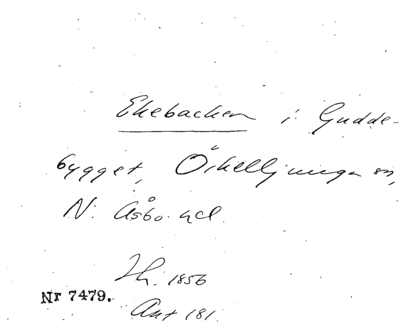 Ekebacken i Gudde-
bygget, Örkelljunga sn,
N. Åsbo hd.
Th. 1856
Nr 7479.
Ant 181.